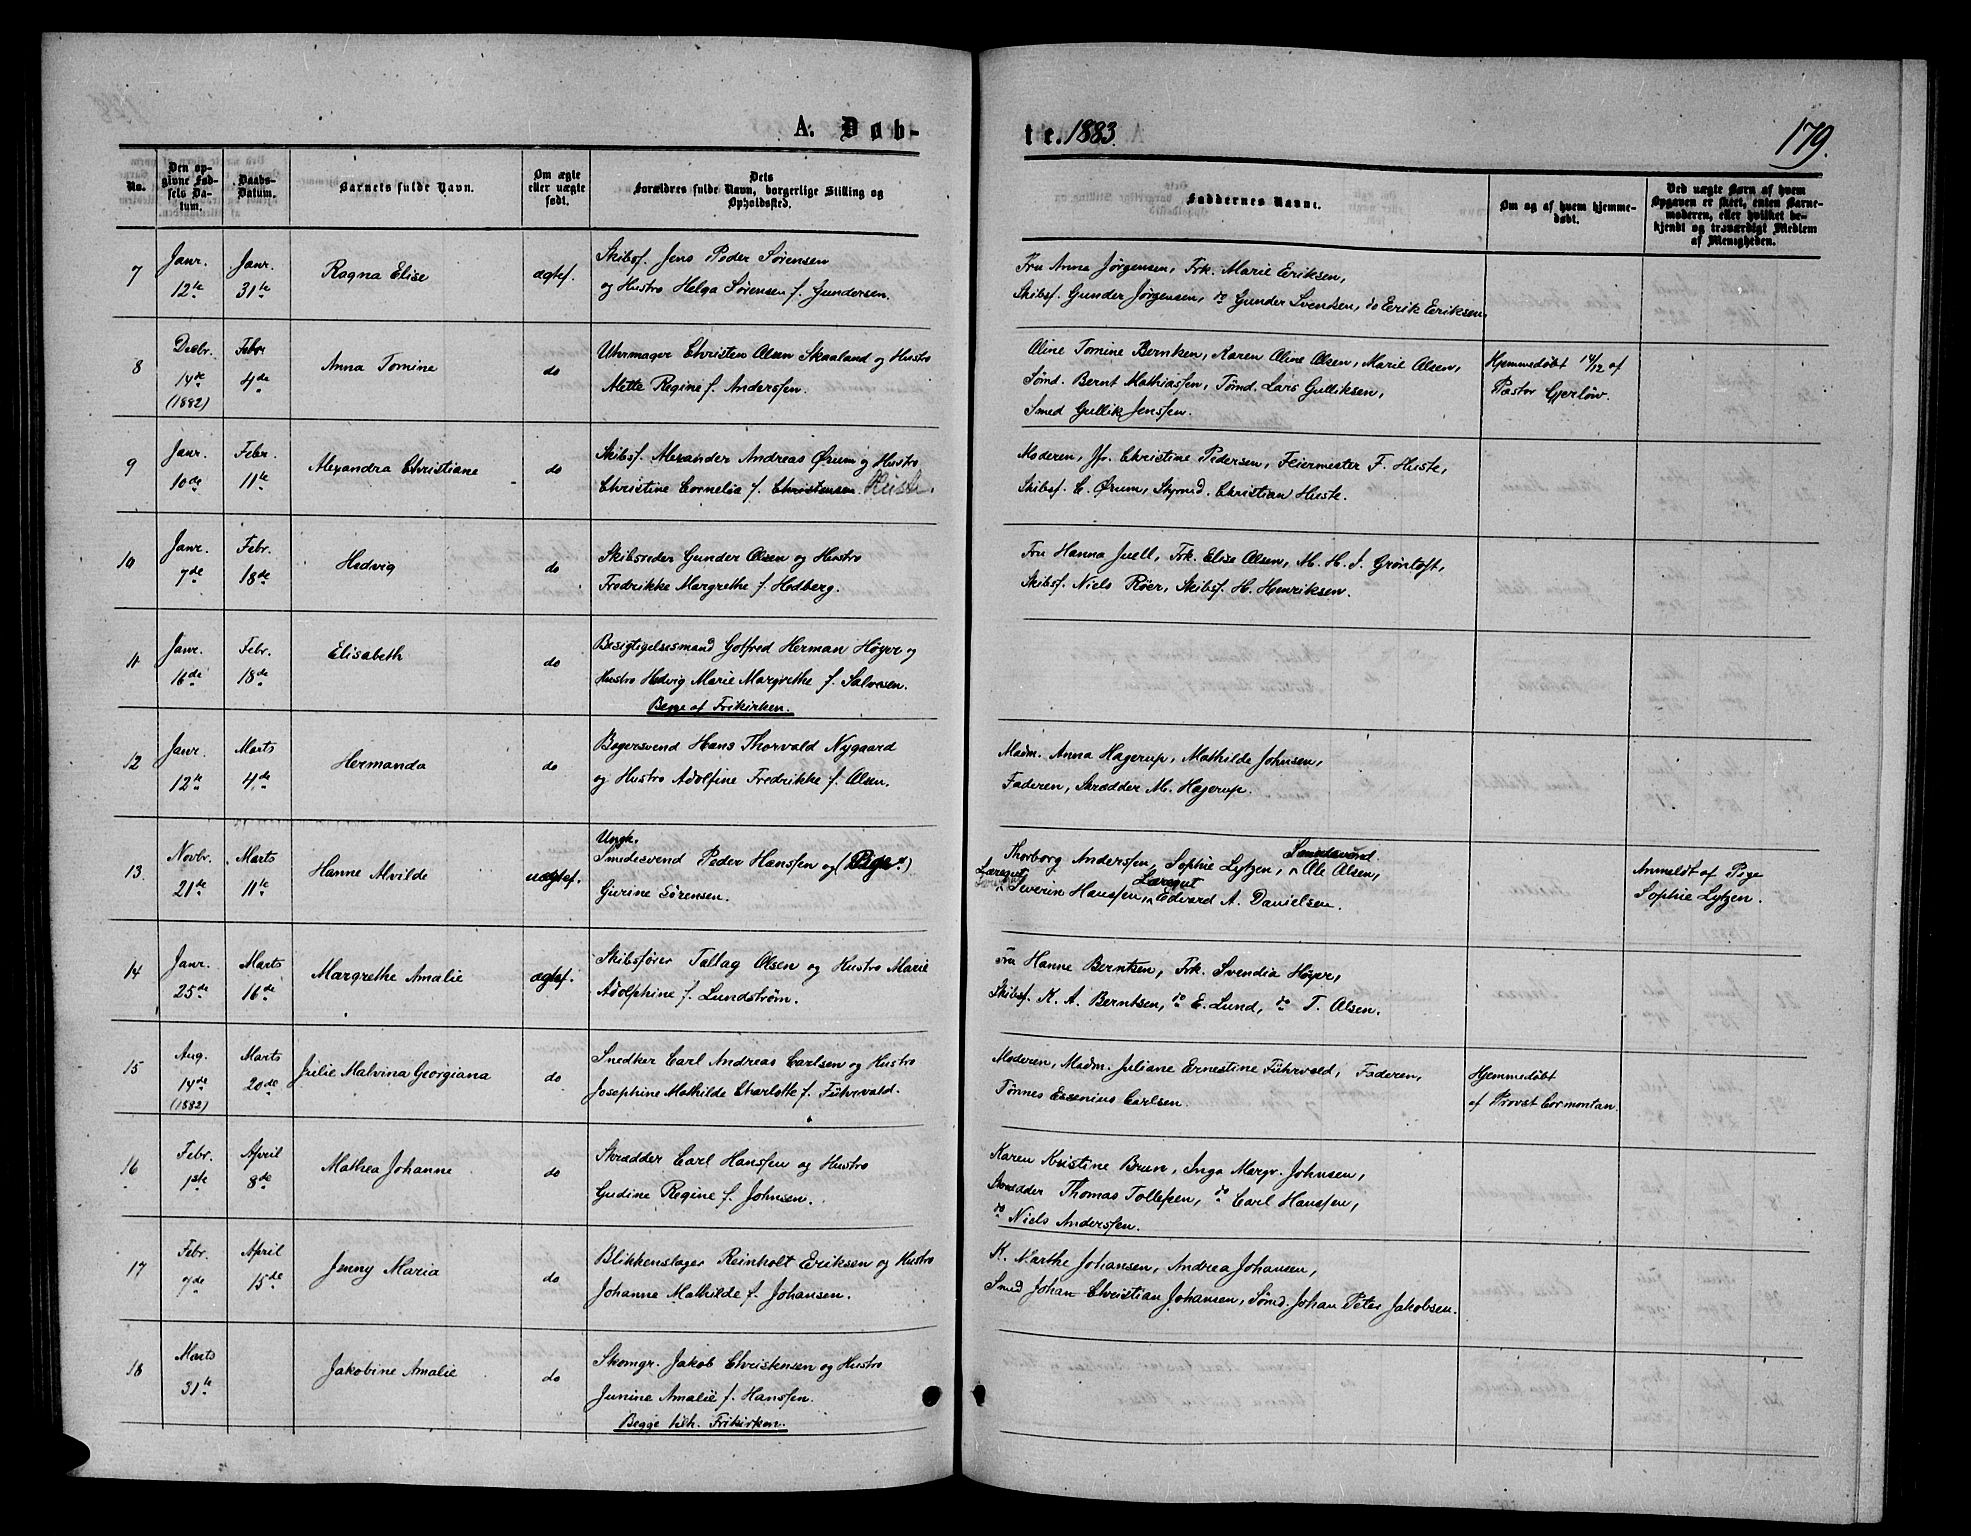 A. Døb-
te. 1883.
179.
No.
Den op-
givne Fød-
sels Da-
tum.
Daabs-
Datum.
Barnets fulde Navn.
Om ægte
eller uægte
født.
Dets
Forældres fulde Navn, borgerlige Stilling og
Opholdssted.
Faddernes Navne.
Om og af hvem hjemme-
døbt.
Ved uægte Børn af hvem
Opgaven er skeet, enten Barne-
moderen, eller hvilket be-
kjendt og troværdigt Medlem
af Menigheden.
7
Janr.
12te
Janr.
31te
Ragna Elise
ægtef.
Skibsf. Jens Peder Sørensen
og Hustro Helga Sørensen f. Gundersen.
Fru Anna Jørgensen, Frk. Marie Eriksen,
Skibsf. Gunder Jørgensen, do Gunder Svendsen, do Eerik Eeriksen.
8
Decbr.
14de
(1882)
Febr
4de
Anna Tomine
do
Uhrmager Christen Olsen Skaaland og Hustro
Alette Regine f. Andersen.
Oline Tomine Berntsen, Karen Oline Olsen, Marie Olsen,
Sømd. Bernt Mathiassen, Tømd. Lars Gulliksen,
Smed Gullik Jenssen.
Hjemmedøbt 14/12 af
Pastor Gjerløw.
9
Janr.
10de
Febr.
11te
Alexandra Christiane
do
Skibsf. Alexander Andreas Ørum og Hustro
Christine Cornelia f. Christensen. Huste.
Moderen, Jfr. Christine Pedersen, Feiermester F. Huste,
Skibsf. C. Ørum, Styrmd. Christian Huste.
10
Janr.
7de
Febr.
18de
Hedvig
do
Skibsreder Gunder Olsen og Hustro
Fredrikke Margrethe f. Hedberg.
Fru Hanna Juell, Frk. Elise Olsen, M. H. S. Grønloft,
Skibsf. Niels Røer, Skibsf. H. Henriksen.
11
Janr.
16de
Febr.
18de
Elisabeth
do
Besigtigelsesmand Gotfred Herman Höyer og
Hustro Hedvig Marie Margrethe f. Salvesen.
Begge af Frikirken.
12
Janr.
12te
Marts
4de
Hermanda
do
Bagersvend Hans Thorvald Nygaard
og Hustro Adolfine Fredrikke f. Olsen.
Madm. Anna Hagerup, Mathilde Johnsen,
Faderen, Skrædder M. Hagerup.
13.
Novbr.
21de
Marts
11te
Hanne Alvilde
uægtef.
Ungk.
Smedesvend Peder Hanssen og (Pige)
Gurine Sørensen.
Thorborg Anderssen, Sophie Lytzen, Smedesvend Ole Olsen,
Læregut Severin Hanssen, Læregut Edvard A. Danielsen.
Anmeldt af Pige
Sophie Lytzen.
14
Janr.
25de
Marts
16de
Margrethe Amalie
ægtef.
Skibsfører Tallag Olsen og Hustro Marie
Adolphine f. Lundstrøm.
Fru Hanne Berntsen, Frk. Svendia Høyer,
Skibsf. K. A. Berntsen, do E. Lund, do T. Olsen.
15
Aug.
14de
(1882)
Marts
20de
Julie Malvina Georgiana
do
Snedker Carl Andreas Carlsen og Hustro
Josephine Mathilde Charlotte f. Führvald.
Moderen, Madm. Juliane Ernestine Führvald, Faderen,
Tönnes Essenius Carlsen.
Hjemmedøbt
af Provst Cormontan.
16
Febr.
1ste
April
8de
Mathea Johanne
do
Skrædder Carl Hanssen og Hustro
Gudine Regine f. Johnsen.
Karen Kristine Brun, Inga Margr. Johnsen,
Skrædder Thomas Tollefsen, do Carl Hanssen,
do Niels Anderssen.
17
Febr.
7de
April
15de
Jenny Maria
do
Blikkenslager Reinholt Eriksen og Hustro
Johanne Mathilde f. Johansen.
K. Marthe Johansen, Andrea Johansen,
Smed Johan Christian Johansen, Sømd. Johan Peter Jakobsen.
18
Marts
31te
Jakobine Amalie
do
Skomgr. Jakob Christensen og Hustro
Junine Amalie f. Hanssen.
Begge tilh. Frikirken.